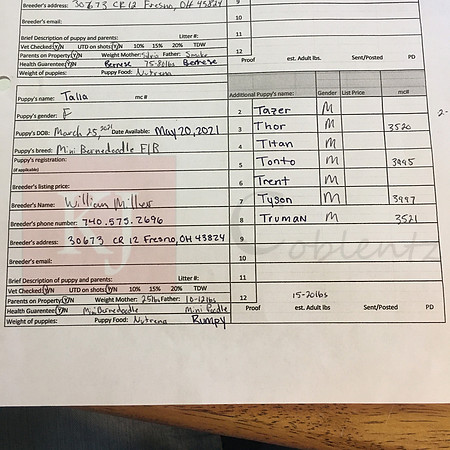 Breeder's address: 30673 CR 12 Fresno, OH 43824
Breeder's email:
Brief Description of puppy and parents: Litter #:
Vet Checked: Y/N UTD on shots Y/N 10% 15% 20% TDW
Parents on Property Y/N Weight Mother: Father: Smoke
Health Guarantee Y/N Bernese 75-80lbs Bernese
Weight of puppies: Puppy Food: Nutrena
9
10
11
12
Proof est. Adult lbs. Sent/Posted PD
Puppy's name: Talia mc#
Puppy's gender: F
Puppy's DOB: March 25, 2021 Date Available: May 20, 2021
Puppy's breed: Mini Bernedoodle F1B
Puppy's registration:
(if applicable)
Breeder's listing price:
Breeder's Name: William Miller
Breeder's phone number: 740.575.2696
Breeder's address: 30673 CR 12 Fresno, OH 43824
Breeder's email:
Brief Description of puppy and parents: Litter #:
Vet Checked Y/N UTD on shots Y/N 10% 15% 20% TDW
Parents on Property Y/N Weight Mother: 25lbs Father: 10-12lbs
Health Guarantee Y/N Mini Bernedoodle Mini Poodle
Weight of puppies: Puppy Food: Nutrena Rumpy
Additional Puppy's name: Gender List Price mc#
2 Tazer M
3 Thor M 3520
4 Titan M
5 Tonto M 3995
6 Trent M
7 Tyson M 3997
8 Truman M 3521
9
10
11
12 15-20lbs
Proof est. Adult lbs Sent/Posted PD
2-
Coblentz